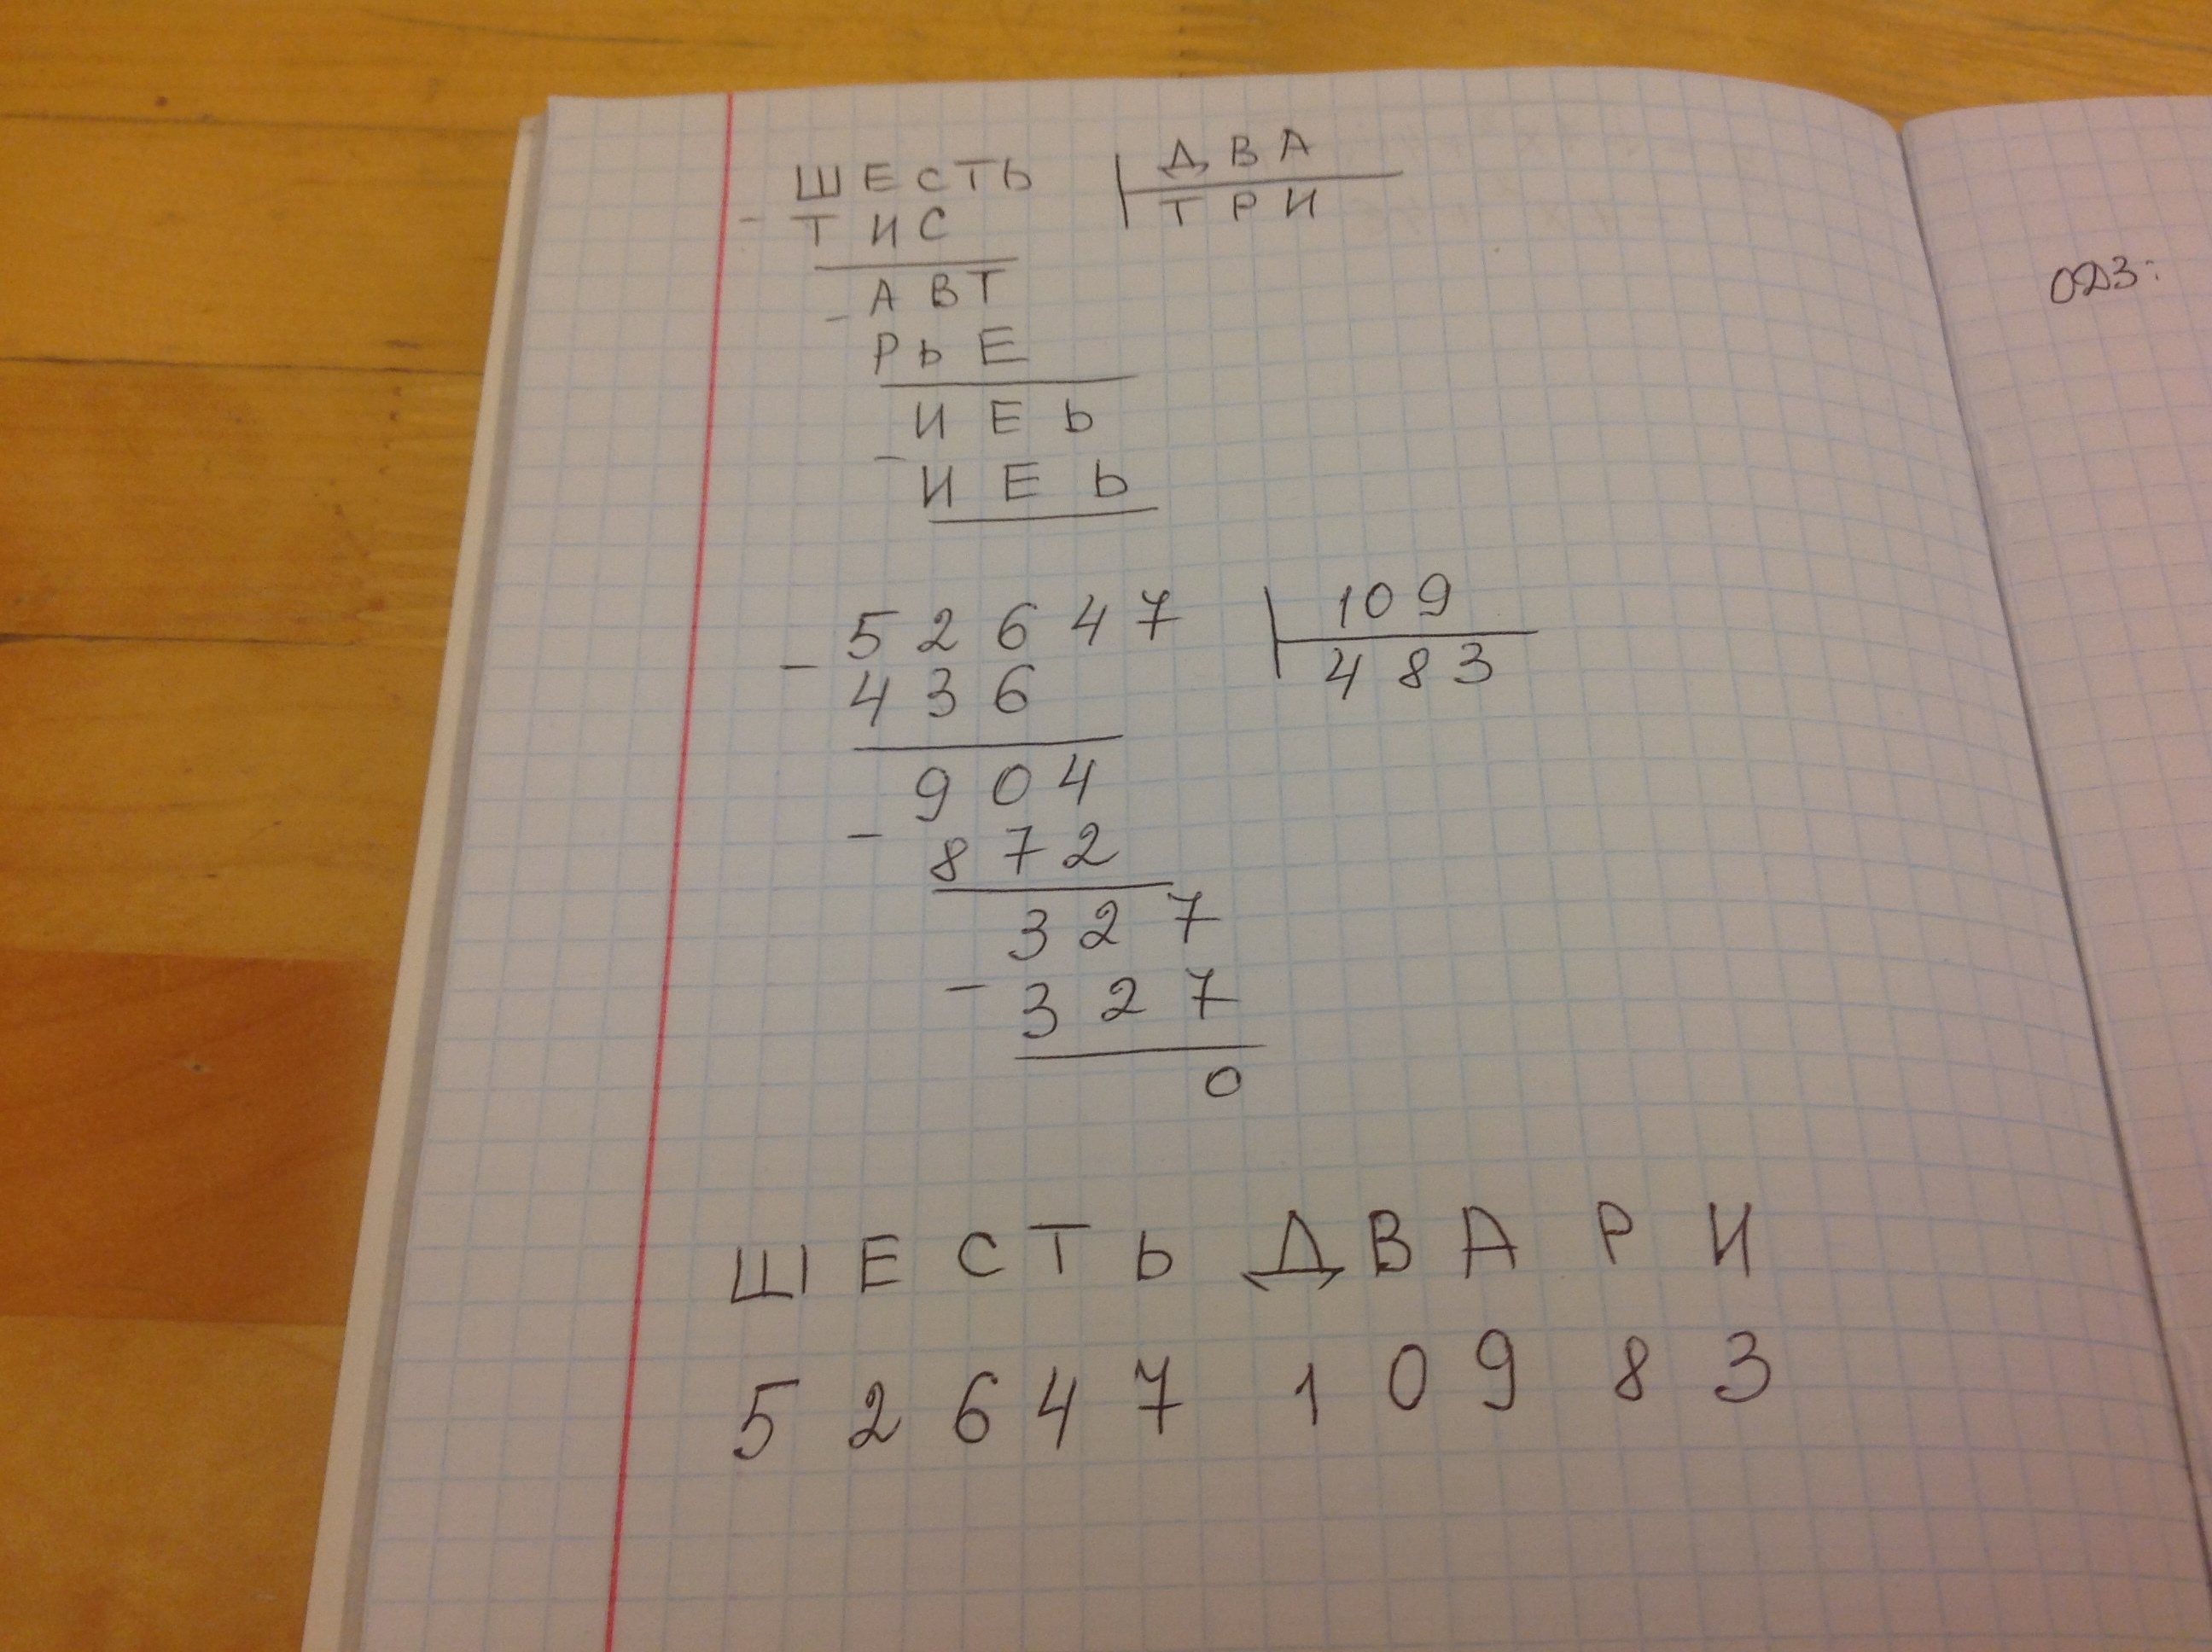 ШЕСТЬ ДВА
- ТИС ТРИ
АВТ
-
РЬЕ
ИЕЬ
-
ИЕЬ
52647 109
- 436 483
904
-
872
327
- 327
0
Ш Е С Т Ь Д В А Р И
5 2 6 4 7 1 0 9 8 3
ОДЗ: